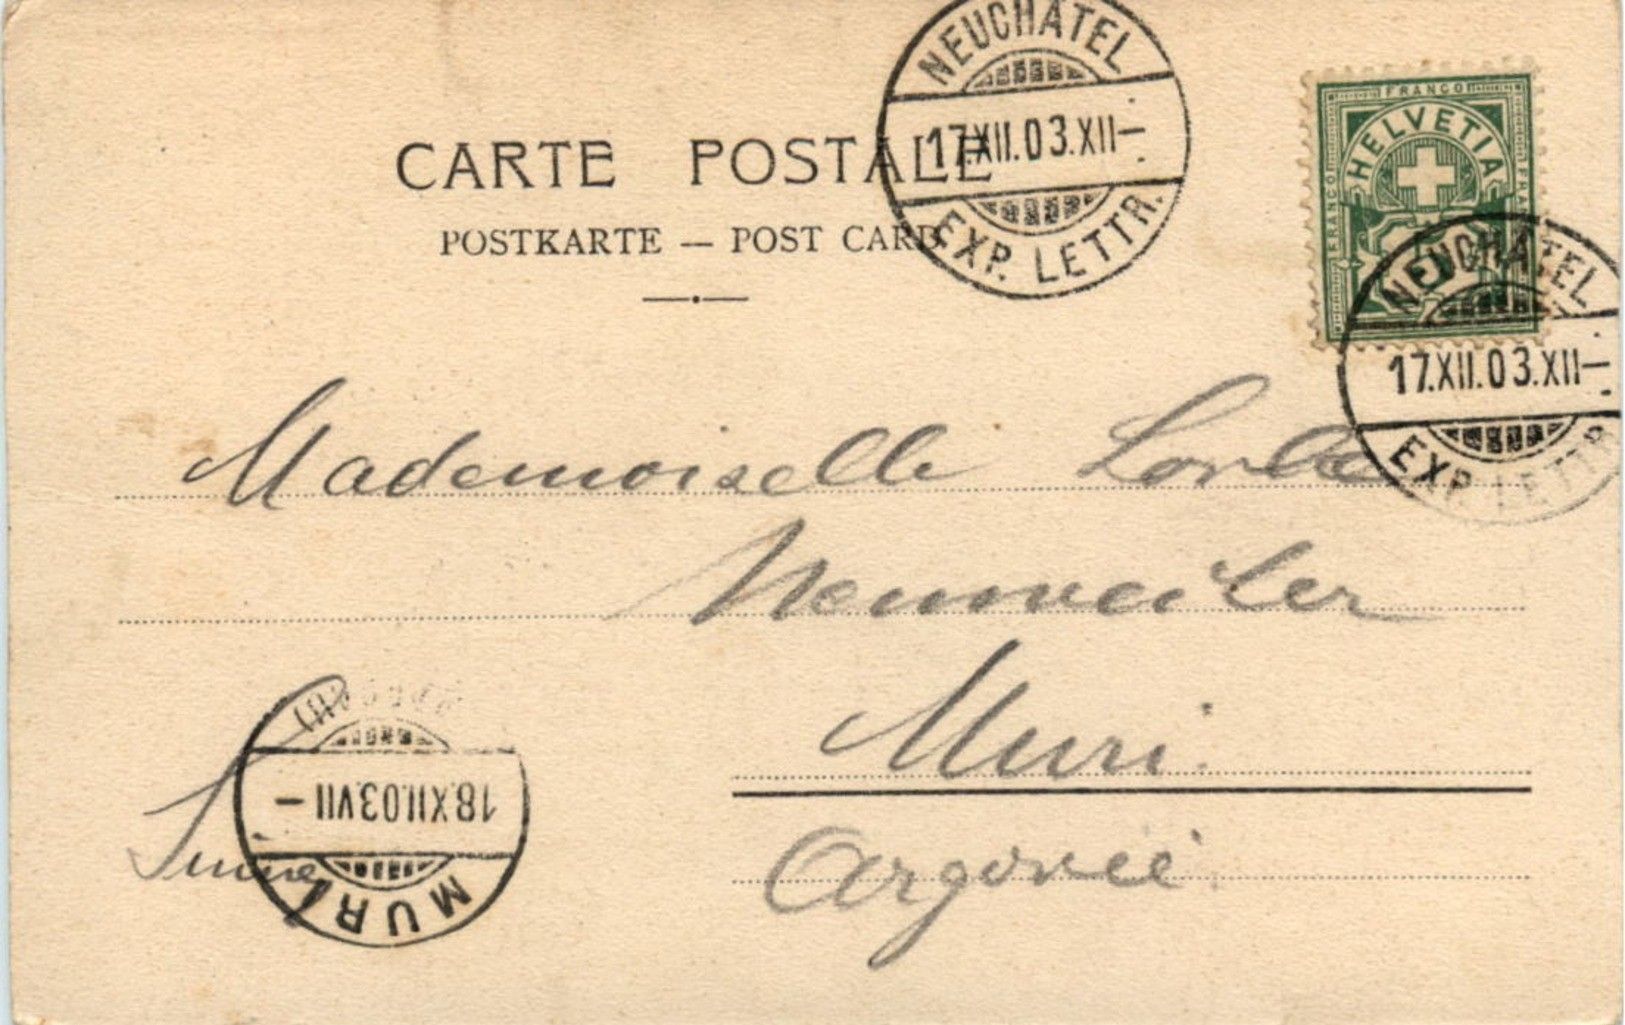 NEUCHATEL
17.XII.03.XII—
EXP. LETTR.
CARTE POSTALE
POSTKARTE — POST CARD
FRANCO
HELVETIA
FRANCO
FRANCO
NEUCHATEL
17.XII.03.XII—
EXP. LETTR.
Mademoiselle
Neuweiler
Muri.
Argovie.
MURI
18.XII.03.VII—